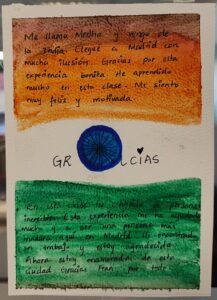 Me llamo Medha y vengo de
la India. Llegué a Madrid con
mucha ilusión. Gracias por esta
experiencia bonita. He aprendido
mucho en esta clase. Me siento
muy feliz y motivada.
GRACIAS
En esta clase he conocido a personas
increíbles. Esta experiencia me ha ayudado
mucho y a ser una persona más
madura aquí en Madrid. He encontrado
un trabajo y estoy agradecida.
Ahora estoy enamorada de esta
ciudad. Gracias Fran por todo.